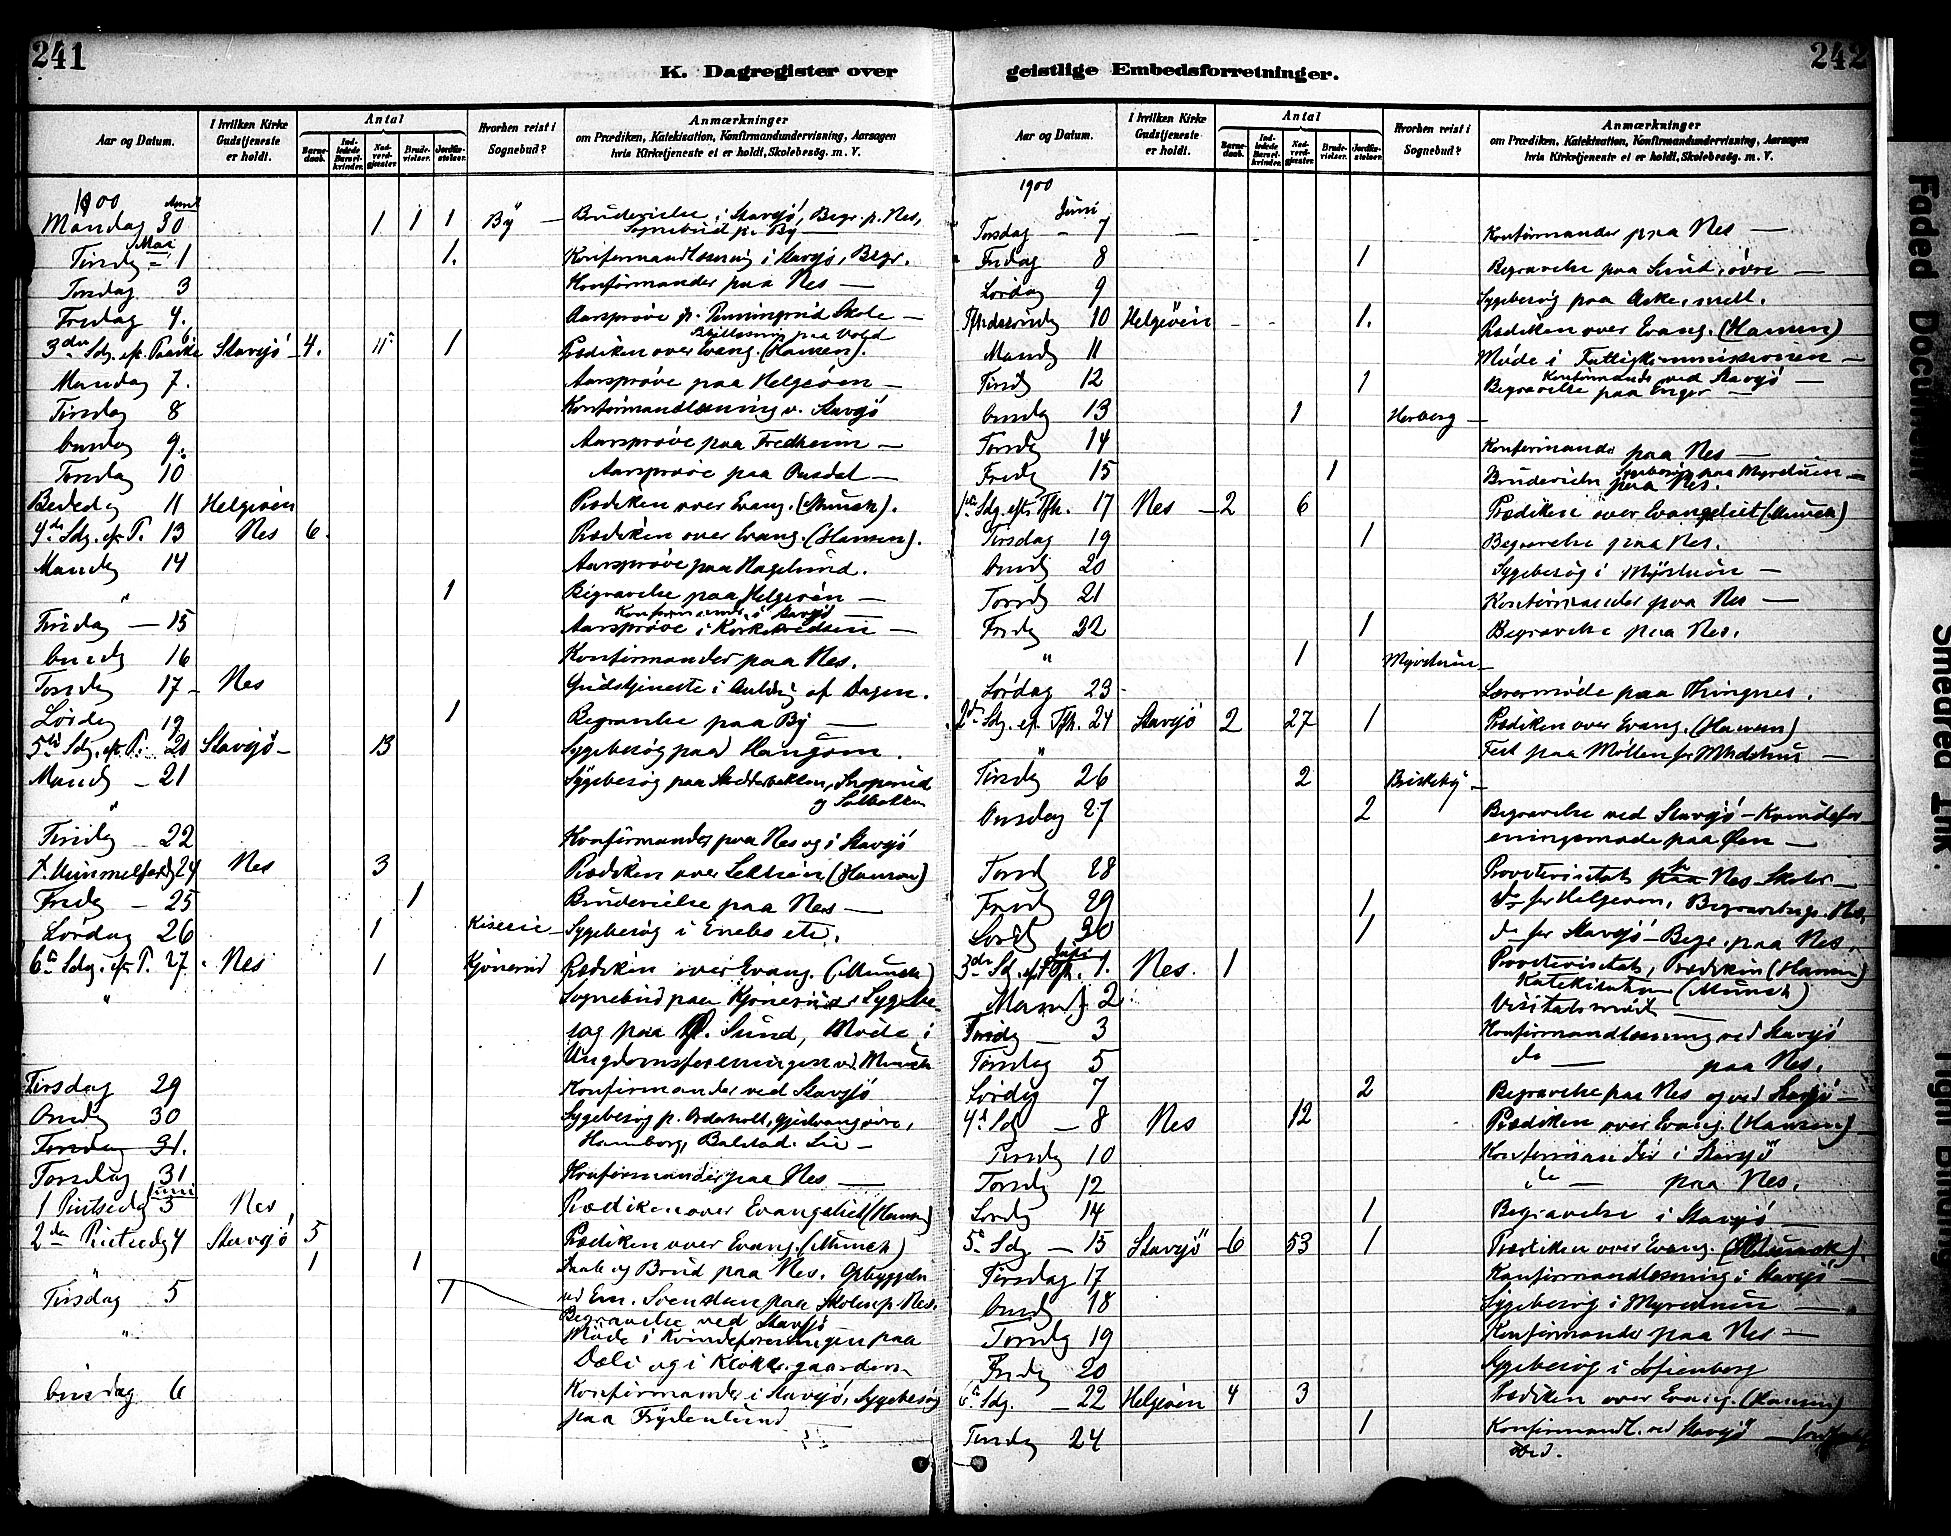 241
K. Dagregister over
Aar og Datum.
I hvilken Kirke Gudstjeneste er holdt.
Antal
Barnedaab.
Indledede Barselkvinder.
Nadverdgjester.
Brudevielser.
Jordfæstelser.
Hvorhen reist i Sognebud?
Anmærkninger
om Prædiken, Katekisation, Konfirmandundervisning, Aarsagen
hvis Kirketjeneste ei er holdt, Skolebesøg. m. V.
1900 April
Mandag 30 1 1 1 By – Brudevielse i Stavsjø, Begr. p. Nes,
Sognebud p. By
Mai
Tirsdg – 1 1. Konfirmandlæsning i Stavsjø, Begr.
Torsdag 3 Konfirmander paa Nes —
Fredag 4. Aarsprøve p. Skole —
paa Vold
3die Sdg. ef. Paaske 6 Stavsjø 4. 11 1 Prædiken over Evang. (Hansen).
Mandag 7. Aarsprøve paa Helgeøen —
Tirsdag 8 Konfirmandlæsning v. Stavsjø
Onsdag 9. Aarsprøve paa Fredheim —
Torsdag 10 Aarsprøve paa —
Bededag 11 Helgeøen Prædiken over Evang. (Munch).
4de Sdg. ef. P. 13 Nes 6. Prædiken over Evang. (Hansen).
Mandg 14 Aarsprøve paa Hagelund.
" 1 Begravelse paa Helgeøen —
Konfirmander i Stavsjø
Tirsdag — 15 Aarsprøve i Kirkekredsen —
Onsdg 16 Konfirmander paa Nes.
Torsdg 17 – Nes Gudstjeneste i Anledng af Dagen.
Lørdag 19 1 Begravelse paa By —
5te Sdg. ef. P. 20 Stavsjø – 13 Sygebesøg paa
Mandg — 21 Sygebesøg paa
og Solbakken
Tirsdg — 22 Konfirmander paa Nes og i Stavsjø
Kr. Himmelfartsdg 24 Nes 3 Prædiken over Lektien (Hansen)
Fredg — 25 1 Brudevielse paa Nes —
Lørdag 26 1 Sygebesøg i Enebo etc.
6te Sdg. ef. P. 27 Nes 1 Kjønerud Prædiken over Evang. (Munch)
" Sognebud paa Kjønerud Sygebe-
søg paa Sund, Møde i
Ungdomsforeningen ved Munch
Tirsdag 29 Konfirmander ved Stavsjø
Onsdg 30 Sygebesøg p.
Balstad, Lie —
Torsdag 31.
Torsdag 31 Konfirmander paa Nes —
Juni
1 Pintsedag 3 Nes, Prædiken over Evangeliet (Hansen)
2den Pintsedg 4 Stavsjø 5 Prædiken over Evang. (Munch)
" 1 1 Daab og Brud paa Nes. Opbyggelse
Tirsdag 5 1 ved Em. Svendsen paa Skolen p. Nes.
Begravelse ved Stavsjø
" Møde i Kvindeforeningen paa
Dæli og i Klokkergaarden
Onsdag 6 Konfirmander i Stavsjø, Sygebesøg
paa Frydenlund —
242
geistlige Embedsforretninger.
Aar og Datum.
I hvilken Kirke Gudstjeneste er holdt.
Antal
Barnedaab.
Indledede Barselkvinder.
Nadverdgjester.
Brudevielser.
Jordfæstelser.
Hvorhen reist i Sognebud?
Anmærkninger
om Prædiken, Katekisation, Konfirmandundervisning, Aarsagen
hvis Kirketjeneste ei er holdt, Skolebesøg. m. V.
1900
Juni
Torsdag – 7 — Konfirmander paa Nes —
Fredag 8 1 Begravelse paa Sund, øvre —
Lørdag 9 Sygebesøg paa Aske, mell.
10 Helgeøen 1. Prædiken over Evang. (Hansen)
Mandg 11 Møde i Fattigkommissionen —
Konfirmander ved Stavsjø —
Tirsdg 12 1 Begravelse paa —
Onsdg 13 1 Herberg –
Torsdg 14 Konfirmander paa Nes —
Fredg 15 1 Brudevielse paa Nes. Sygebesøg paa
1ste Sdg. eft. Tfh. 17 Nes – 2 6 Prædiken over Evangeliet (Munch)
Tirsdag 19 1 Begravelse paa Nes.
Onsdg 20 Sygebesøg i —
Torsdg 21 Konfirmander paa Nes —
Fredg 22 1 Begravelse paa Nes.
" 1
Lørdag 23 Lærermøde paa Tingnes.
2den Sdg. ef. Tfh. 24 Stavsjø 2 27 1 Prædiken over Evang. (Hansen)
" Fest paa Møllen for —
Tirsdg 26 2
Onsdag 27 2 Begravelse ved Stavsjø – Kvindefor-
eningsmøde paa Øen —
Torsd 28 Provstevisitats for Nes Skoler —
Fredg 29 1 do for Helgeøen, Begravelse p. Nes.
Lørdg 30 1 do for Stavsjø – Begr. paa Nes.
Juli
3die Sdg. ef. Tfh. 1. Nes. 1 Provstevisitats, Prædiken (Hansen)
Katekisation (Munch)
Mandg 2 Visitatsmøde —
Tirsdg – 3 Konfirmandlæsning ved Stavsjø
Torsdag 5 do — paa Nes.
Lørdag 7 2 Begravelse paa Nes og ved Stavsjø –
4de Sdg — 8 Nes 12 Prædiken over Evang. (Hansen)
Tirsdg 10 Konfirmander i Stavsjø
Torsdg 12 do — paa Nes.
Lørdg 14 1 Begravelse i Stavsjø —
5te Sdg. — 15 Stavsjø – 6 53 1 Prædiken over Evang. (Munch).
Tirsdag 17 Konfirmandlæsning i Stavsjø —
Onsd 18 Sygebesøg i —
Torsdg 19 Konfirmander paa Nes —
Fredg 20 Sygebesøg i Sofienborg
6te Sdg. — 22 Helgeøen 4 3 Prædiken over Evang. (Hansen)
Tirsdg 24 1 Konfirmandl. ved Stavsjø —
Faded Document
Smeared Ink.
Tight Binding